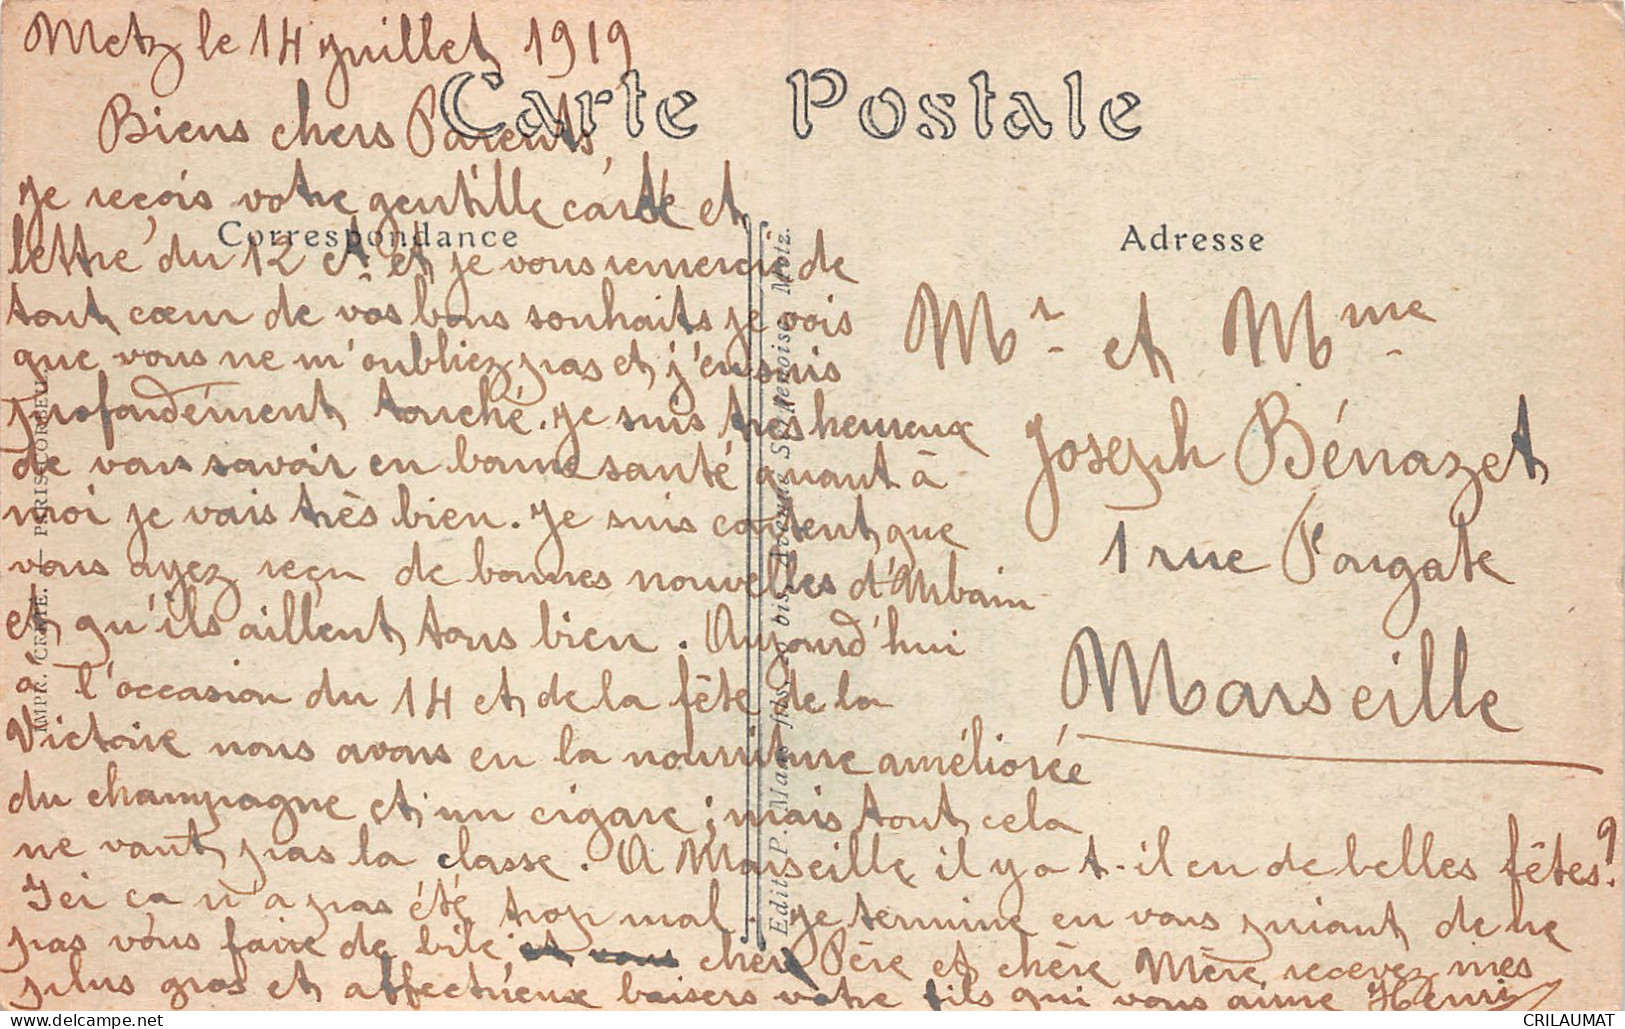 Metz le 14 juillet 1919
Carte Postale
Biens chers Parents,
Je reçois votre gentille carte et
Correspondance
lettre du 12 ct et je vous remercie de
tout cœur de vos bons souhaits je vois
que vous ne m'oubliez pas et j'en suis
profondément touché. Je suis très heureux
de vous savoir en bonne santé quant à
moi je vais très bien. Je suis content que
vous ayez reçu de bonnes nouvelles d'Urbain
et qu'ils aillent tous bien. Aujourd'hui
à l'occasion du 14 et de la fête de la
Victoire nous avons eu la nourriture améliorée
du champagne et un cigare; mais tout cela
ne vaut pas la classe. A Marseille il y a t-il eu de belles fêtes?
Ici ça n'a pas été trop mal. Je termine en vous priant de ne
pas vous faire de bile et vous chers Père et chère Mère recevez mes
plus gros et affectueux baisers votre fils qui vous aime Henri
Adresse
Mr. et Mme.
Joseph Bénazet
1 rue Fougate
Marseille
IMPR. CRÉTÉ. — PARIS-CORBEIL
Edit. P. Maas fils, bis, Avenue Serpenoise, Metz.
CRILAUMAT
delcampe.net